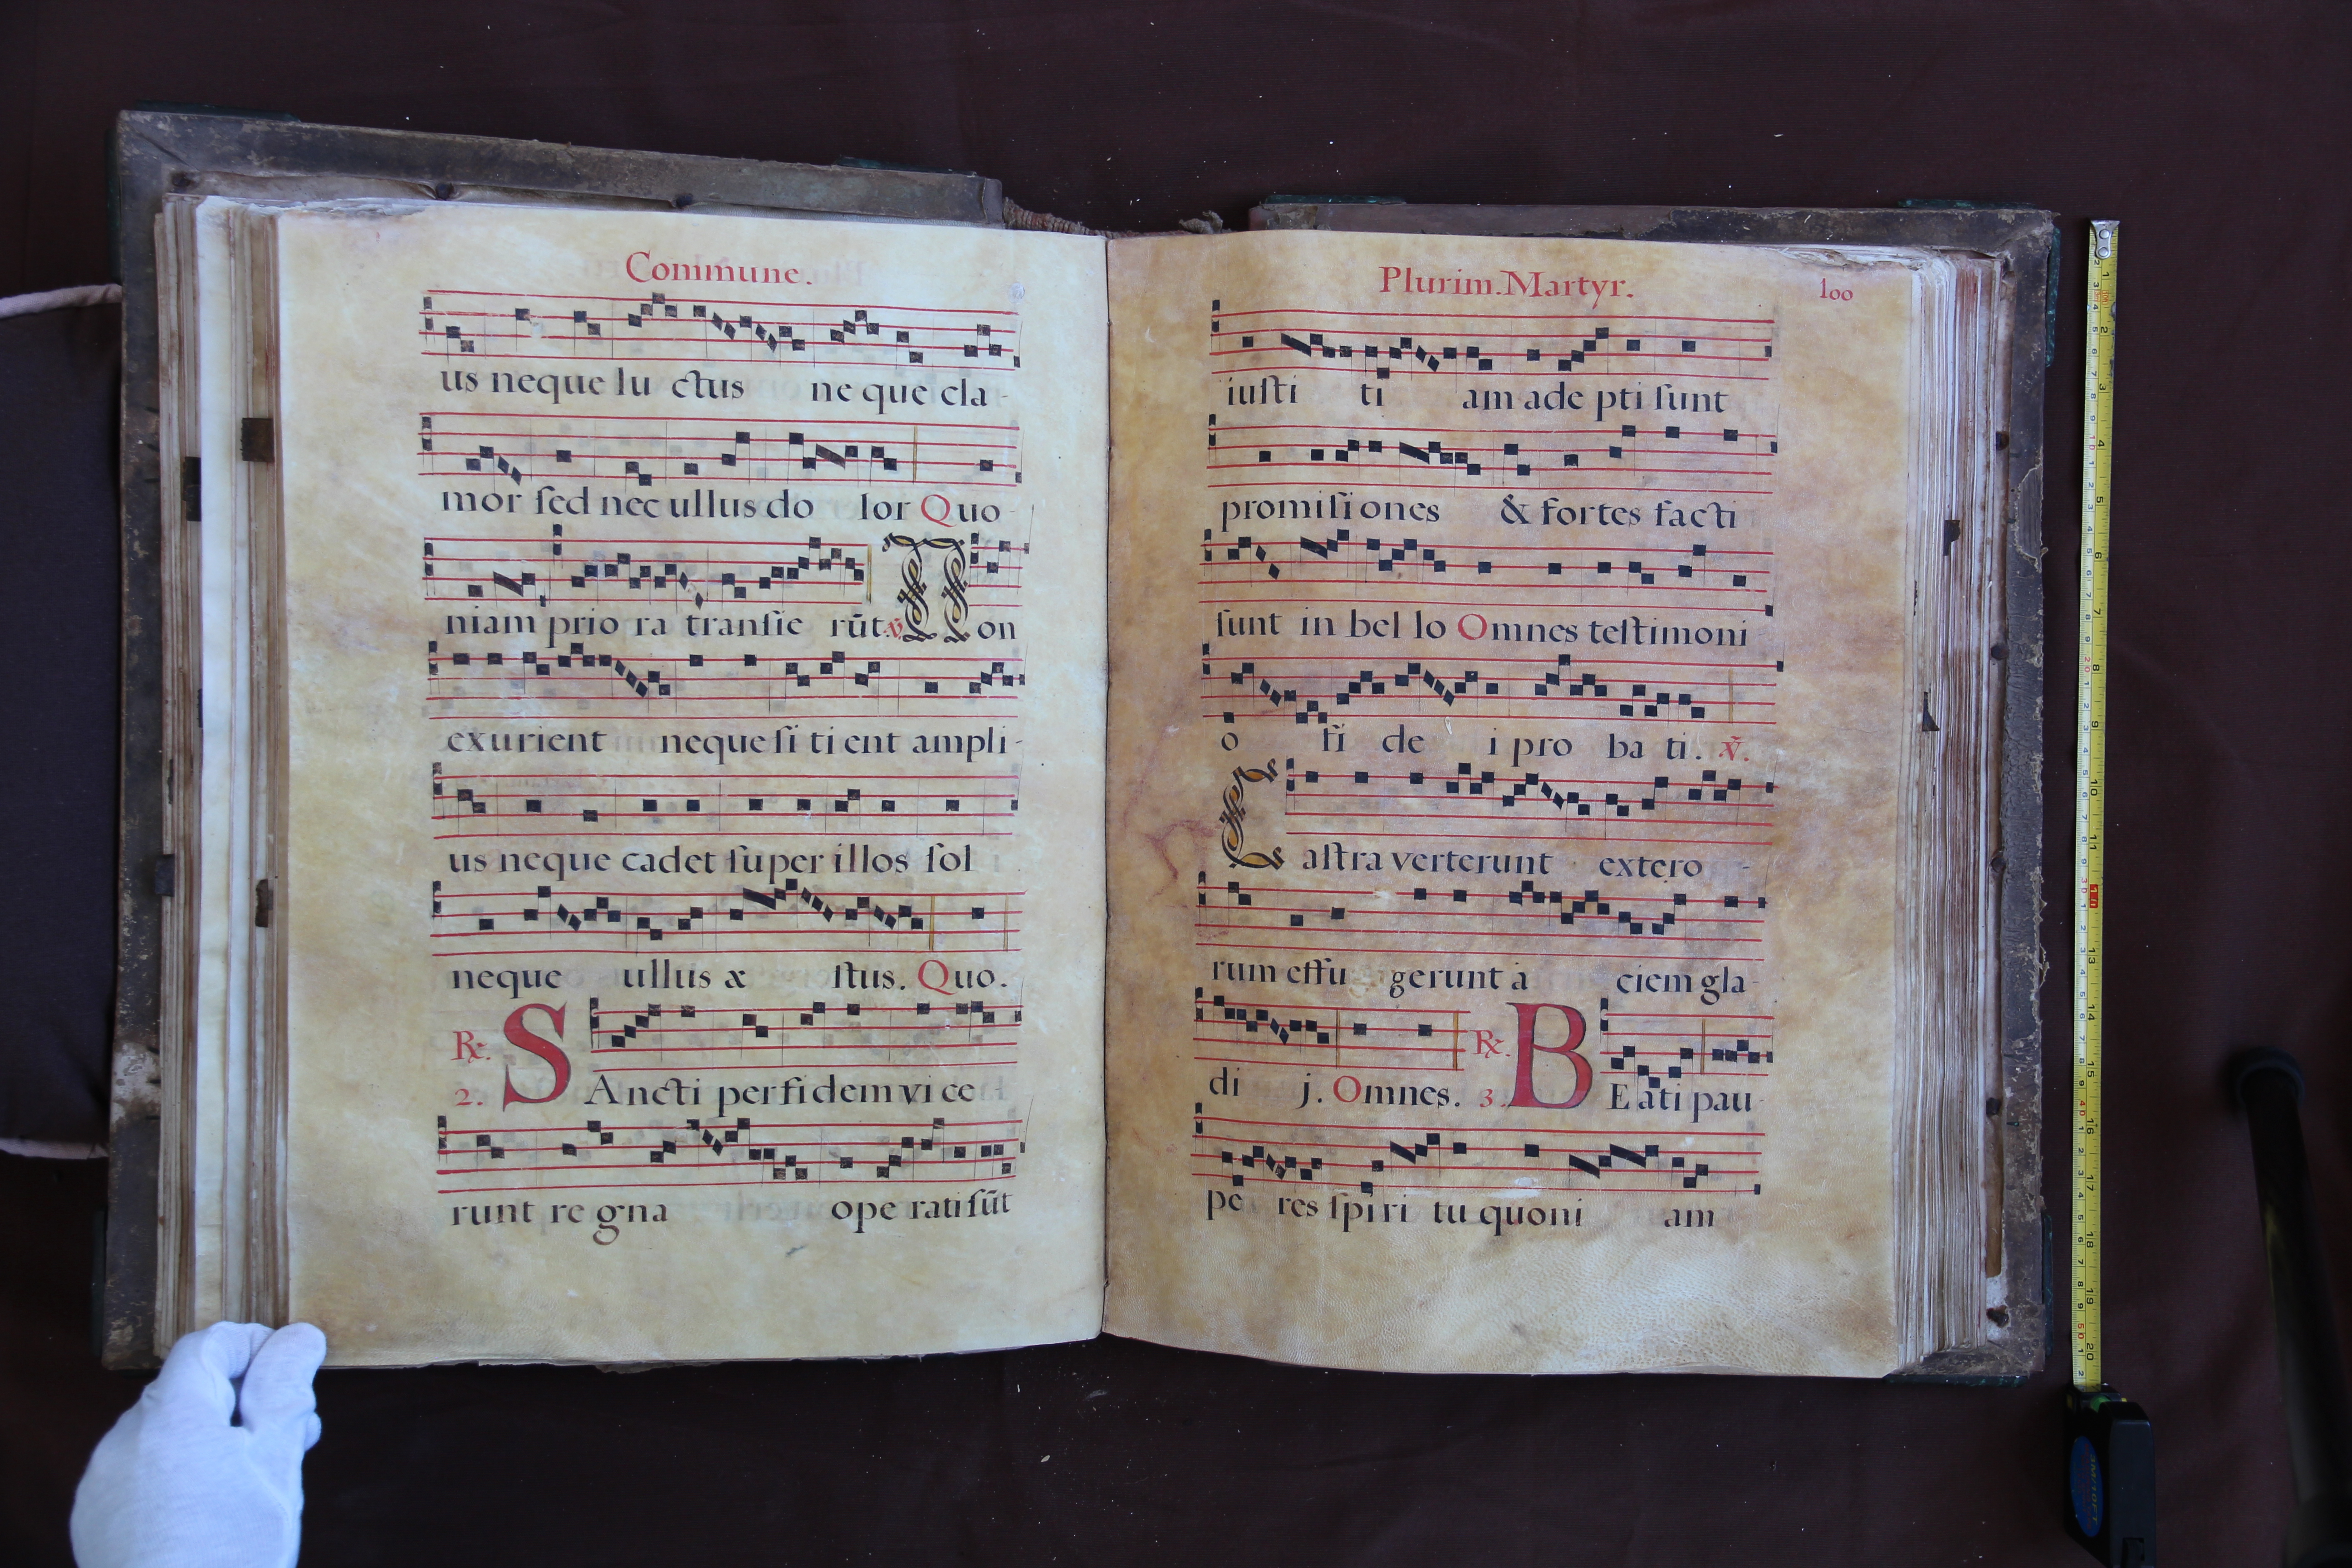 Commune.
us neque lu ctus ne que cla-
mor ſed nec ullus do lor Quo-
niam prio ra tranſie rūt. ℣. Non
exurient neque ſi ti ent ampli-
us neque cadet ſuper illos ſol
neque ullus æ ſtus. Quo.
℟. 2. SAncti per fidem vi ce
runt re gna ope rati ſūt
Plurim. Martyr. 100
iuſti ti am ade pti ſunt
promiſi ones & fortes facti
ſunt in bel lo Omnes teſtimoni-
o fi de i pro ba ti. ℣.
Caſtra verterunt extero-
rum effu gerunt a ciem gla-
di j. Omnes. ℟. 3. BEati pau-
pe res ſpiri tu quoni am